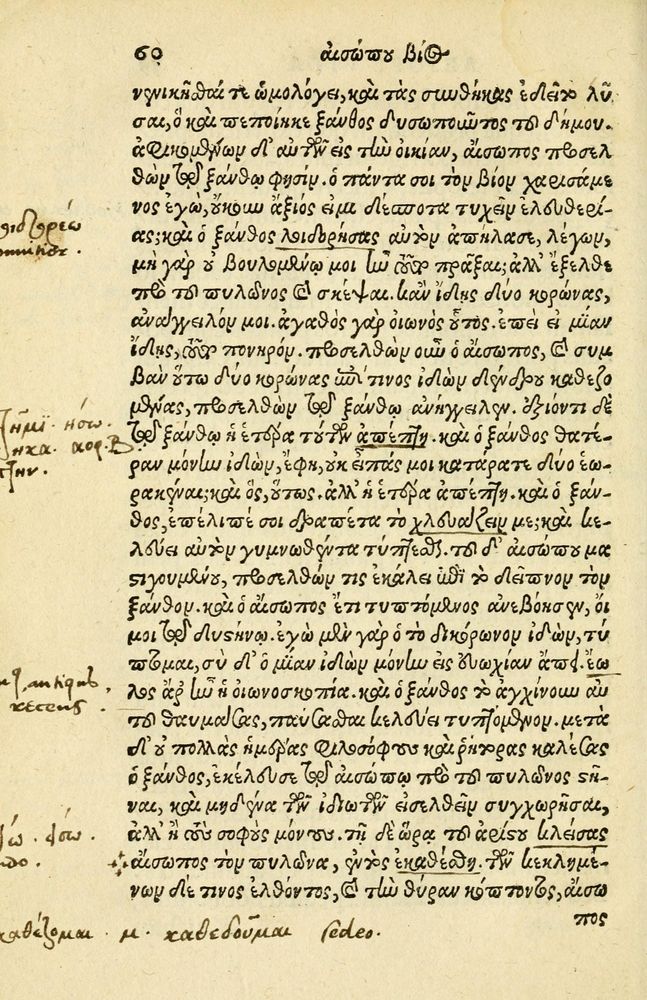 60 αἰσώπου βίος
νενικῆσθαί τε ὡμολόγει, καὶ τὰς συνθήκας ἐδεῖτο λῦ
σαι, ὃ καὶ πεποίηκε ξάνθος δυσωποῦντος τοῦ δήμου.
ἀφικομένων δ' αὐτῶν εἰς τὴν οἰκίαν, αἴσωπος προσελ
θὼν τῷ ξάνθῳ φησίν. ὁ πάντα σοι τὸν βίον χαρισάμε
νος ἐγὼ, οὔκουν ἄξιός εἰμι δέσποτα τυχεῖν ἐλευθερί
ας; καὶ ὁ ξάνθος λοιδορήσας αὐτὸν ἀπήλασε, λέγων,
μὴ γὰρ οὐ βουλομένῳ μοι ἦν τοῦτο πρᾶξαι; ἀλλ' ἔξελθε
πρὸ τοῦ πυλῶνος καὶ σκέψαι. κἂν ἴδῃς δύο κορώνας,
ἀνάγγειλόν μοι. ἀγαθὸς γὰρ οἰωνὸς οὗτος. ἐπεὶ εἰ μίαν
ἴδῃς, τοῦτο πονηρόν. προσελθὼν οὖν ὁ αἴσωπος, καὶ συμ
βὰν οὕτω δύο κορώνας ἐπί τινος ἰδὼν δένδρου καθεζο
μένας, προσελθὼν τῷ ξάνθῳ ἀνήγγειλεν. ἐξιόντι δὲ
τῷ ξάνθῳ ἡ ἑτέρα τούτων ἀπέπτη. καὶ ὁ ξάνθος θατέ
ραν μόνην ἰδὼν, ἔφη, οὐκ εἶπάς μοι κατάρατε δύο ἑω
ρακέναι; καὶ ὃς, οὕτως. ἀλλ' ἡ ἑτέρα ἀπέπτη. καὶ ὁ ξάν
θος, ἐπέλιπέ σοι δραπέτα τὸ χλευάζειν με; καὶ κε
λεύει αὐτὸν γυμνωθέντα τύπτεσθαι. τοῦ δ' αἰσώπου μα
στιγουμένου, προσελθών τις ἐκάλει ἐπὶ τὸ δεῖπνον τὸν
ξάνθον. καὶ ὁ αἴσωπος ἔτι τυπτόμενος ἀνεβόησεν, οἴ
μοι τῷ δυστήνῳ. ἐγὼ μὲν γὰρ ὁ τὸ δικόρωνον ἰδὼν, τύ
πτομαι, σὺ δ' ὁ μίαν ἰδὼν μόνην εἰς εὐωχίαν ἄπει. ἕω
λος ἄρ' ἦν ἡ οἰωνοσκοπία. καὶ ὁ ξάνθος τὸ ἀγχίνουν αὐ
τοῦ θαυμάσας, παύσασθαι κελεύει τυπτόμενον. μετὰ
δ' οὐ πολλὰς ἡμέρας φιλοσόφους καὶ ῥήτορας καλέσας
ὁ ξάνθος, ἐκέλευσε τῷ αἰσώπῳ πρὸ τοῦ πυλῶνος στῆ
ναι, καὶ μηδένα τῶν ἰδιωτῶν εἰσελθεῖν συγχωρῆσαι,
ἀλλ' ἢ τοὺς σοφοὺς μόνους. τῇ δὲ ὥρᾳ τοῦ ἀρίστου κλείσας
αἴσωπος τὸν πυλῶνα, ἐντὸς ἐκαθέσθη. τῶν κεκλημέ
νων δέ τινος ἐλθόντος, καὶ τὴν θύραν κόπτοντος, αἴσω
πος
καθέζομαι . μ . καθεδοῦμαι sedeo.